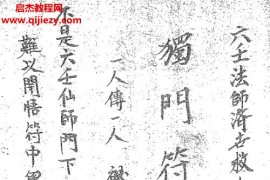 六壬法師濟世救
獨門符
一人傳一人
不是六壬仙師門下
難以開悟符中
启杰教程网
www.qijie7.com